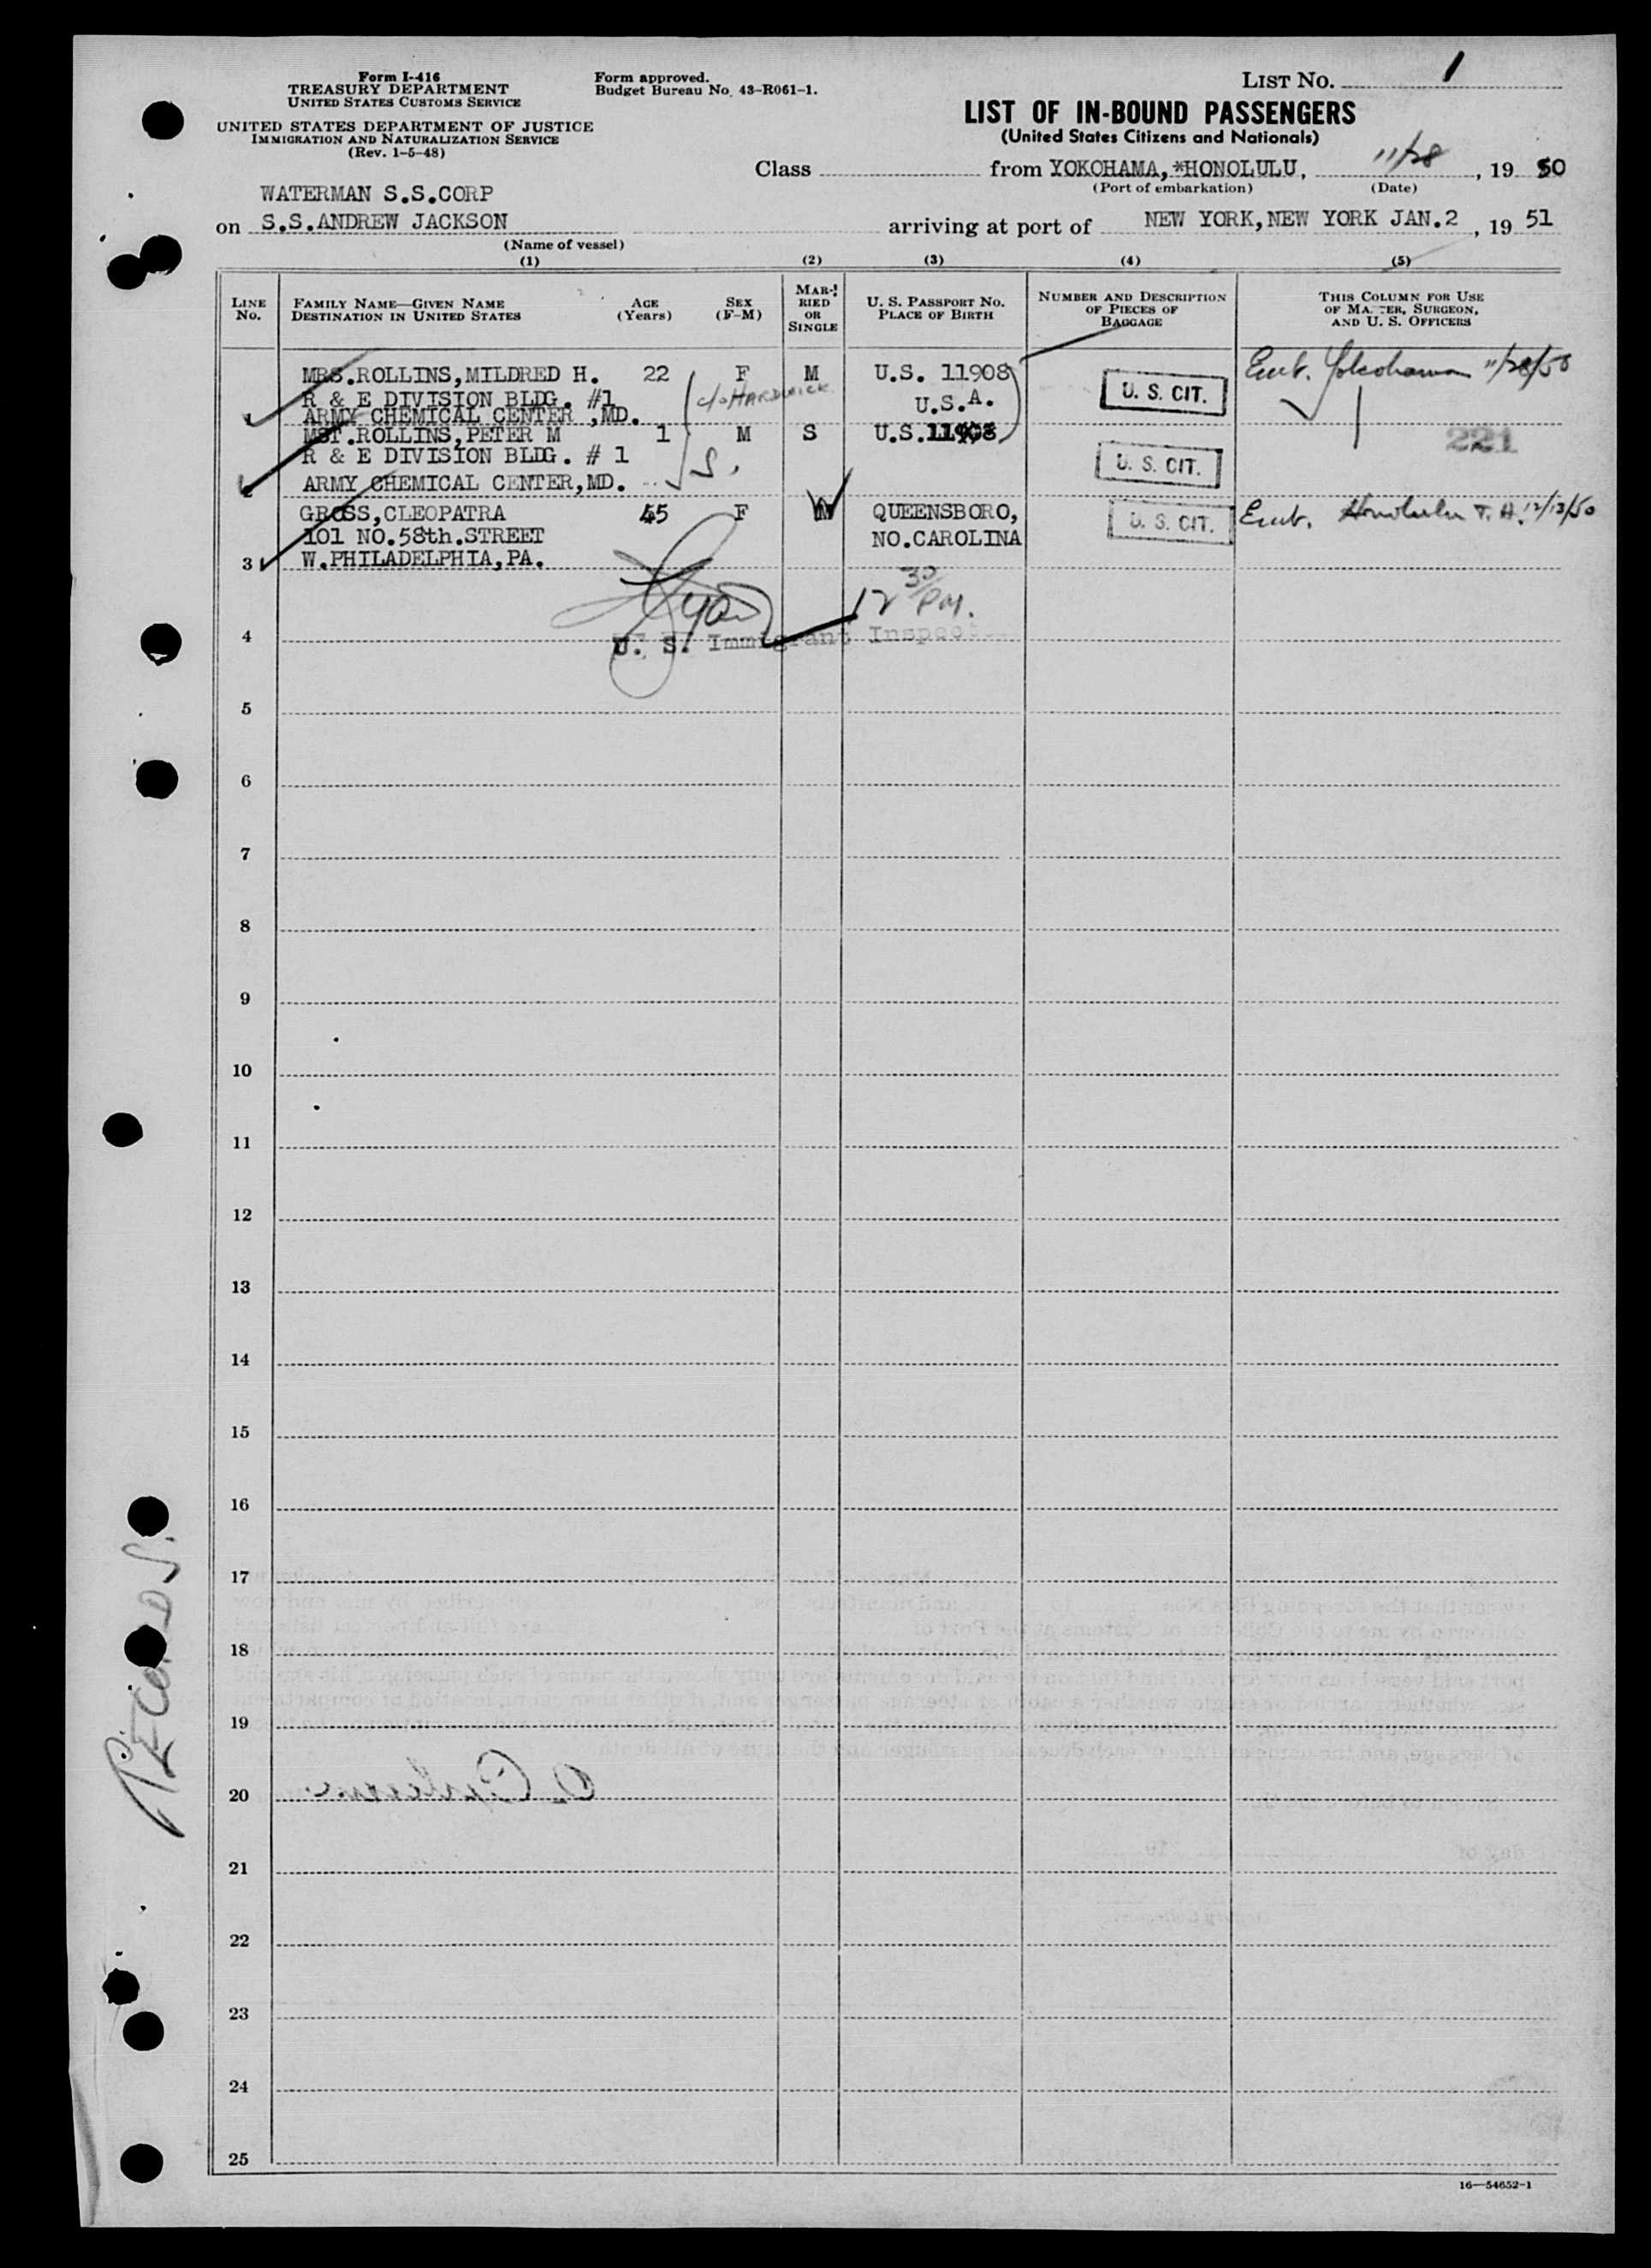 Form I-416
TREASURY DEPARTMENT
UNITED STATES CUSTOMS SERVICE
UNITED STATES DEPARTMENT OF JUSTICE
IMMIGRATION AND NATURALIZATION SERVICE
(Rev. 1-5-48)
Form approved.
Budget Bureau No. 43-R061-1.
LIST No. 1
LIST OF IN-BOUND PASSENGERS
(United States Citizens and Nationals)
Class from YOKOHAMA,*HONOLULU, 11/28, 19 50
(Port of embarkation) (Date)
WATERMAN S.S.CORP
on S.S.ANDREW JACKSON arriving at port of NEW YORK,NEW YORK JAN.2, 19 51
(Name of vessel)
(1) (2) (3) (4) (5)
LINE No. FAMILY NAME—GIVEN NAME DESTINATION IN UNITED STATES AGE (Years) SEX (F-M) MARRIED OR SINGLE U. S. PASSPORT No. PLACE OF BIRTH NUMBER AND DESCRIPTION OF PIECES OF BAGGAGE THIS COLUMN FOR USE OF MASTER, SURGEON, AND U. S. OFFICERS
MRS.ROLLINS,MILDRED H. 22 F M U.S. 11908 U. S. CIT. Emb. Yokohama 11/28/50
R & E DIVISION BLDG. #1 c/o HARDWICK U.S.A.
ARMY CHEMICAL CENTER ,MD.
MST.ROLLINS,PETER M 1 M S U.S.11908 221
R & E DIVISION BLDG. # 1 S. U. S. CIT.
ARMY CHEMICAL CENTER,MD.
GROSS,CLEOPATRA 45 F QUEENSBORO, U. S. CIT. Emb. Honolulu T.H. 12/13/50
101 NO.58th.STREET NO.CAROLINA
3 W.PHILADELPHIA,PA.
Ryan 12 30 PM.
4 U. S. Immigrant Inspec
5
6
7
8
9
10
11
12
13
14
15
16
17
18
19
20
21
22
23
24
25
16—54652-1